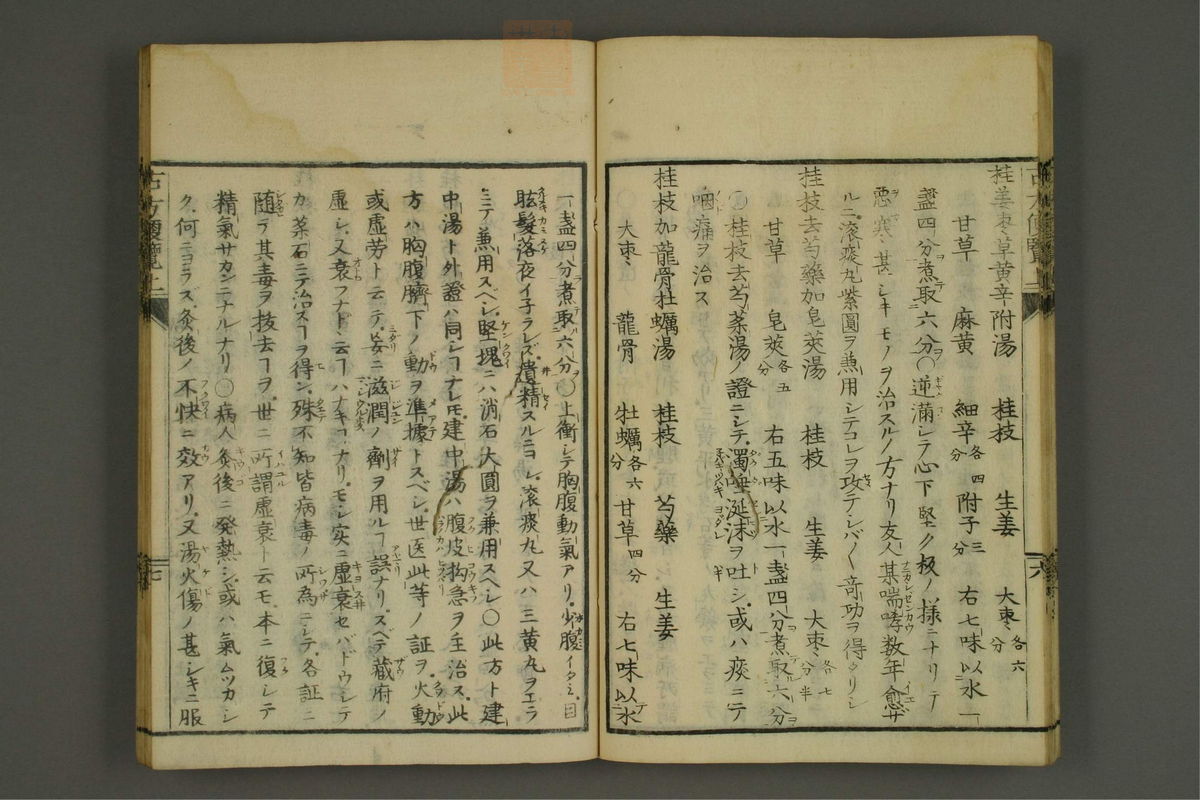 桂姜枣草黄辛附湯　桂枝　生姜　大枣各六分
甘草　麻黄　細辛各四分　附子三分　右七味以水一
盞四分煮取六分〇逆滿シテ心下堅ク板ノ様ニナリテ
悪寒甚シキモノヲ治スルノ方ナリ友人某喘哮数年愈ザ
ルニ滚痰丸紫圓ヲ兼用シテコレヲ攻テシバ〱奇功ヲ得タリシ
桂枝去芍藥加皂莢湯　桂枝　生姜　大枣各七分半
甘草　皂莢各五分　右五味以水一盞四分煮取六分
〇桂枝去芍薬湯ノ證ニシテ濁唾涎沫ヲ吐シ或ハ痰ニテ
咽痛ヲ治ス
桂枝加龍骨牡蠣湯　桂枝　芍藥　生姜
大枣　龍骨　牡蠣各六分　甘草四分　右七味以水
一盞四分煮取六分〇上衝シテ胸腹動氣アリ少腹イタミ目
眩髮落夜イ子ラレズ遺精スルニヨシ滚痰丸又ハ三黄丸ヲエラ
ミテ兼用スベシ堅塊ニハ消石大圓ヲ兼用スヘシ〇此方ト建
中湯ト外證ハ同シヿナレ𪜈建中湯ハ腹皮拘急ヲ主治ス此
方ハ胸腹臍下ノ動ヲ準據トスベシ世医此等ノ証ヲ火動
或虚劳ト云テ妄ニ滋潤ノ劑ヲ用ルヿ誤ナリスベテ蔵府ノ
虚シ又衰フナド云フヿハナキヿナリモシ实ニ虚衰セバドウシテ
カ薬石ニテ治スルヿヲ得ン殊不知皆病毒ノ所為ニシテ各証ニ
随テ其毒ヲ抜去ルヿヲ世ニ所謂虚衰ト云モ本ニ復シテ
精氣サカンニナルナリ〇病人灸後ニ発熱シ或ハ氣ムツカシ
ク何ニヨラズ灸後ノ不快ニ效アリ又湯火傷ノ甚シキニ服
古方便覽上
六
古方便覽上
七